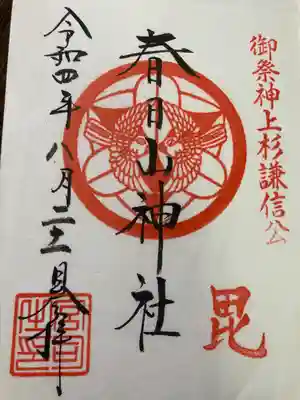 御祭神上杉謙信公
毘
春日山神社
令和四年八月二十二日
拝